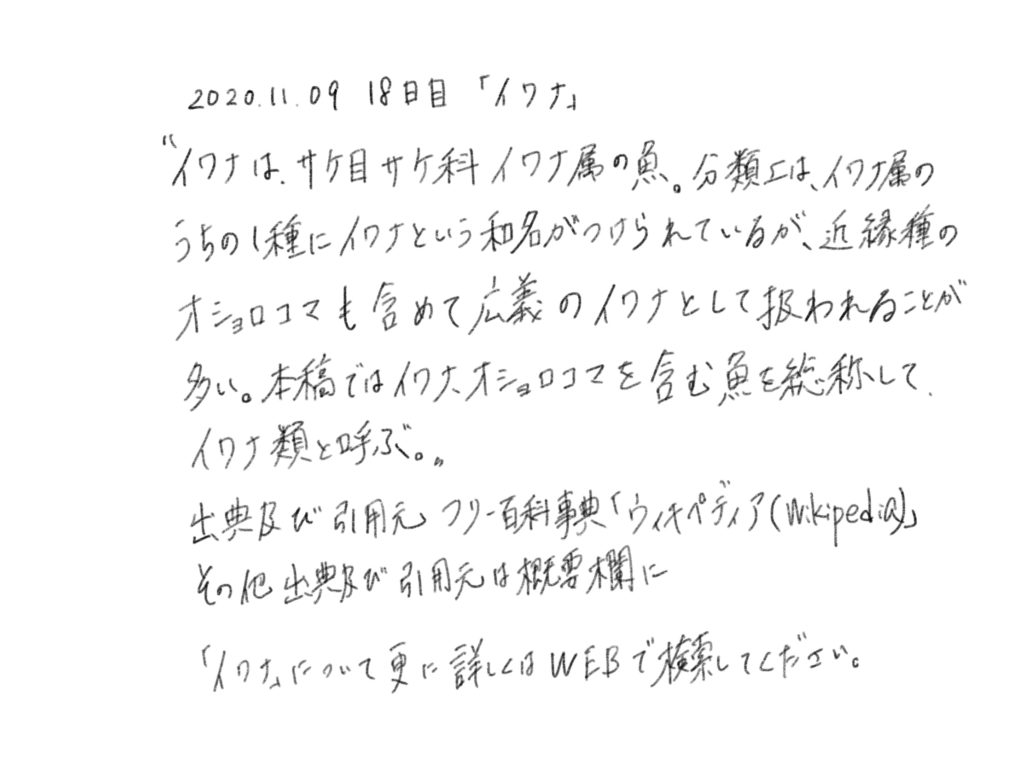 2020.11.09 18日目「イワナ」
“イワナは、サケ目サケ科イワナ属の魚。分類上は、イワナ属の
うちの1種にイワナという和名がつけられているが、近縁種の
オショロコマも含めて広義のイワナとして扱われることが
多い。本稿ではイワナ、オショロコマを含む魚を総称して、
イワナ類と呼ぶ。„
出典及び引用元 フリー百科事典「ウィキペディア(Wikipedia)」
その他出典及び引用元は概要欄に
「イワナ」について更に詳しくはWEBで検索してください。